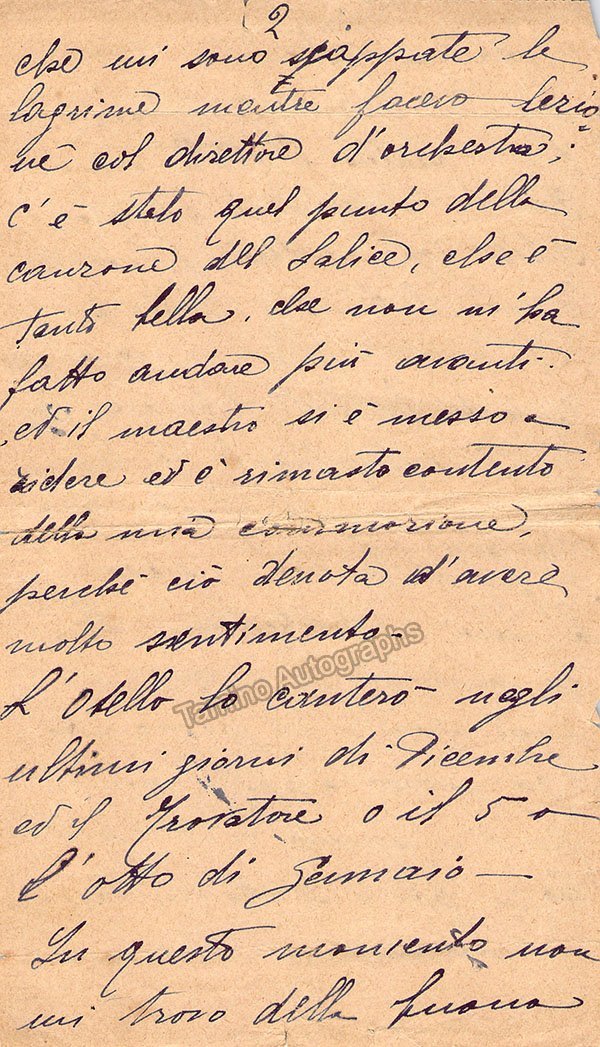 2
che mi sono scappate le
lagrime mentre facevo lezio=
ne col direttore d'orchestra;
c'è stato quel punto della
canzone del Salice, che è
tanto bella, che non m'ha
fatto andare più avanti.
ed il maestro si è messo a
ridere ed è rimasto contento
della mia commozione,
perchè ciò denota d'avere
molto sentimento.
L'Otello lo canterò negli
ultimi giorni di Dicembre
ed il Trovatore o il 5 o
l'otto di Gennaio —
In questo momento non
mi trovo della buona
Tamino Autographs